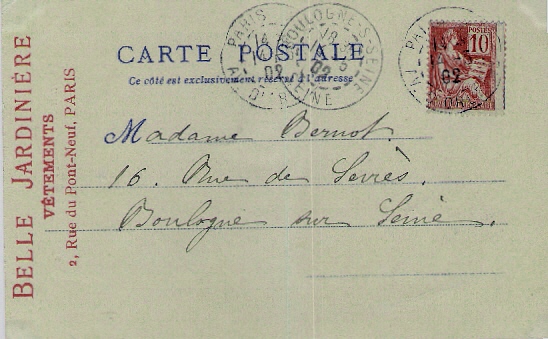 BELLE JARDINIÈRE
VÊTEMENTS
2, Rue du Pont-Neuf, PARIS
CARTE POSTALE
Ce côté est exclusivement réservé à l'adresse
PARIS
14
02
BOULOGNE-S-SEINE
SEINE
02
POSTES
10
PARIS
02
Madame Bernot.
16. Rue de Sevrès.
Boulogne sur Seine.